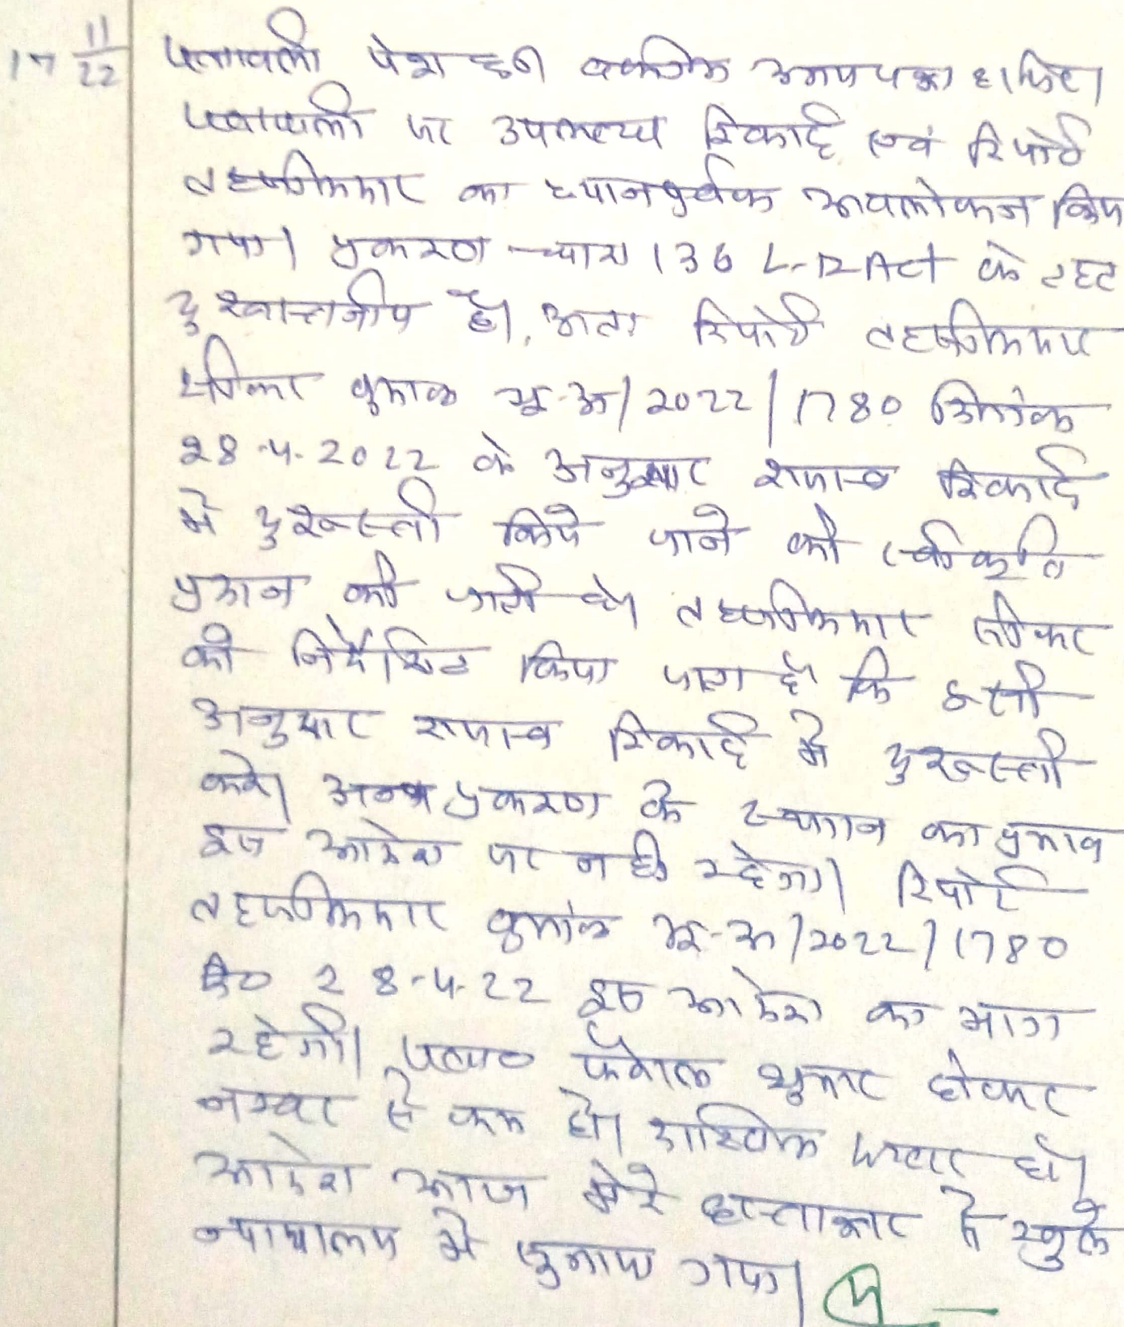 17 11/22 पत्रावली पेश हुई वकील उभयपक्ष हाजिर।
पत्रावली पर उपलब्ध रिकार्ड एवं रिपोर्ट
तहसीलदार का ध्यानपूर्वक अवलोकन किया
गया। प्रकरण धारा 136 L.R Act के तहत
दुरूस्तनीय है। अतः रिपोर्ट तहसीलदार
सीकर क्रमांक भू-अ/2022/1780 दिनांक
28-4-2022 के अनुसार राजस्व रिकार्ड
में दुरूस्ती किये जाने की स्वीकृति
प्रदान की जाती है। तहसीलदार सीकर
को निर्देशित किया जाता है कि इसी
अनुसार राजस्व रिकार्ड में दुरूस्ती
करे। अन्य प्रकरण के स्थगन का प्रभाव
इस आदेश पर नही रहेगा। रिपोर्ट
तहसीलदार क्रमांक भू-अ/2022/1780
दि० 28-4-22 इस आदेश का भाग
रहेगी। पत्रा० फैसल शुमार होकर
नम्बर से कम हो। दाखिल दफ्तर हो।
आदेश आज मेरे हस्ताक्षर से खुले
न्यायालय में सुनाया गया।